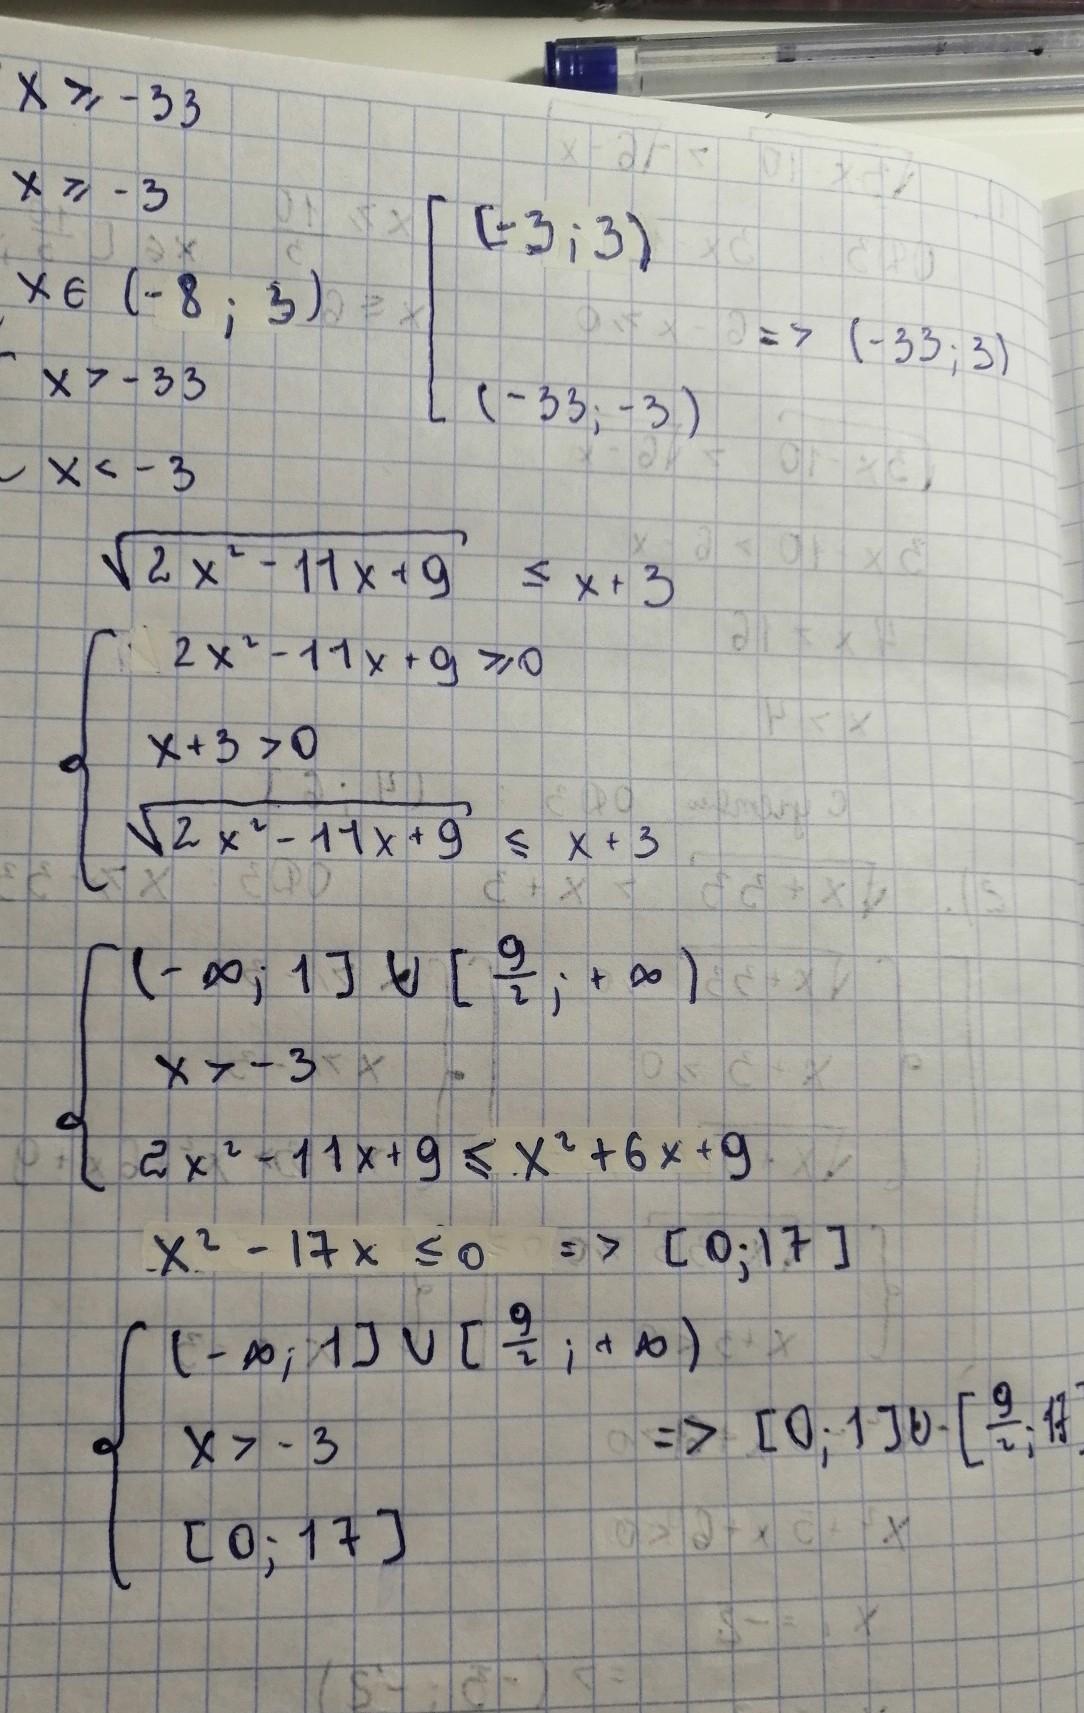 x ⩾ -33
x ⩾ -3
x ∈ (-8; 3)
x > -33
x < -3
[-3; 3)
(-33; -3)
=> (-33; 3)
√(2x² - 11x + 9) ≤ x + 3
2x² - 11x + 9 ⩾ 0
x + 3 > 0
√(2x² - 11x + 9) ≤ x + 3
(-∞; 1] ∪ [9/2; +∞)
x > -3
2x² - 11x + 9 ≤ x² + 6x + 9
x² - 17x ≤ 0 => [0; 17]
(-∞; 1] ∪ [9/2; +∞)
x > -3
[0; 17]
=> [0; 1] ∪ [9/2; 17]